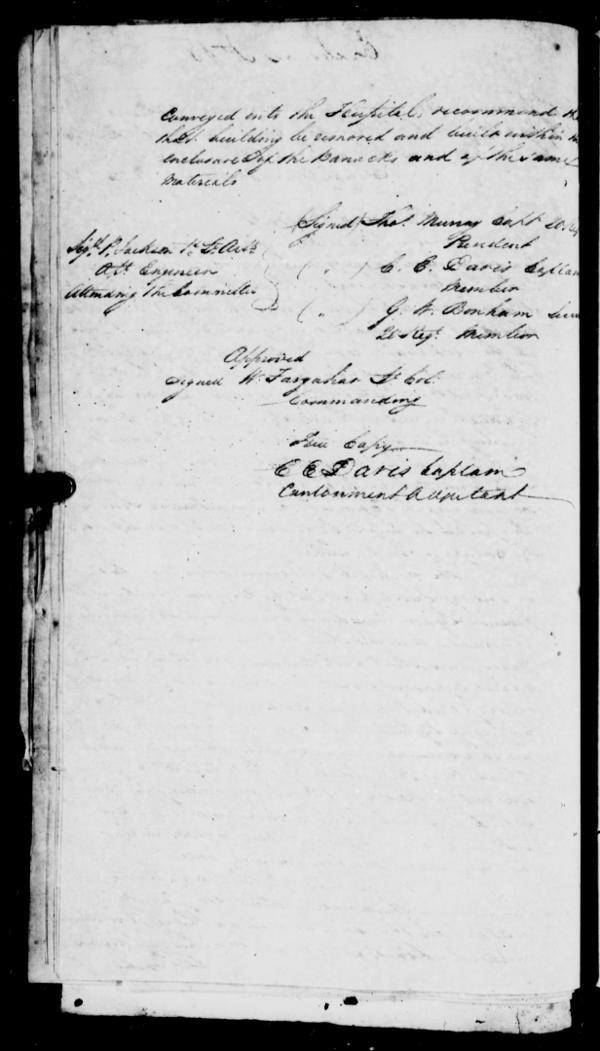 Conveyed into the Hospital, recommend
that building be removed and built within
enclosure of the Barracks and of the same
materials
(Signed) Thos. Murray Capt. 20
President
Sigd. P. Jackson
C. E. Davis Captain
Engineer
Member
Attending the Committee
G. W. Bonham
20 Regt. Member
Approved
Signed W. Farquhar Lt Col.
Commanding
True Copy
C E Davis Captain
Cantonment Adjutant